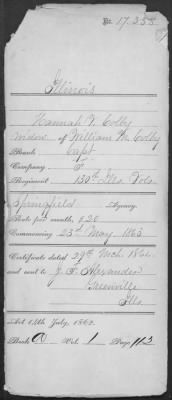 No. 17,358
Illinois
Hannah V. Colby
widow of William M. Colby
Rank Capt
Company F
Regiment 130th Ills. Vols.
Springfield Agency.
Rate per month, $20
Commencing 23d May 1863
Certificate dated 29th Mch 1864
and sent to J. F. Alexander
Greenville
Ills
Act 14th July, 1862.
Book A Vol. 1 Page 113